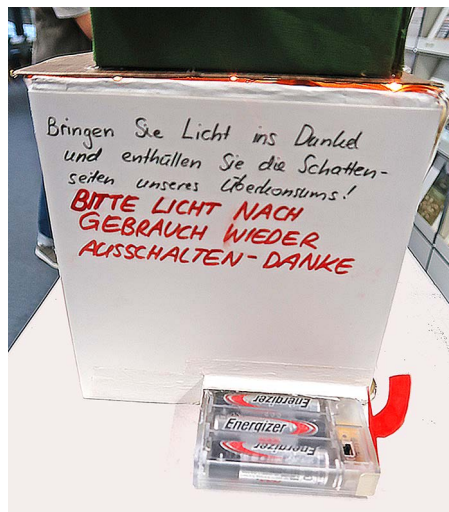 Bringen Sie Licht ins Dunkel
und enthüllen Sie die Schatten-
seiten unseres Überkonsums!
BITTE LICHT NACH
GEBRAUCH WIEDER
AUSSCHALTEN - DANKE
Energizer
Energizer
Energizer